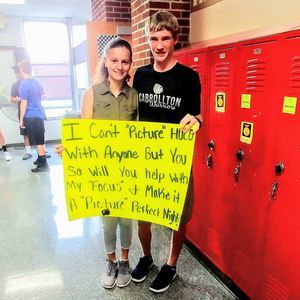 CARROLLTON
I Can't "Picture" HOCO
With Anyone But You
So Will You help With
My "Focus" & Make it
A "Picture" Perfect Night